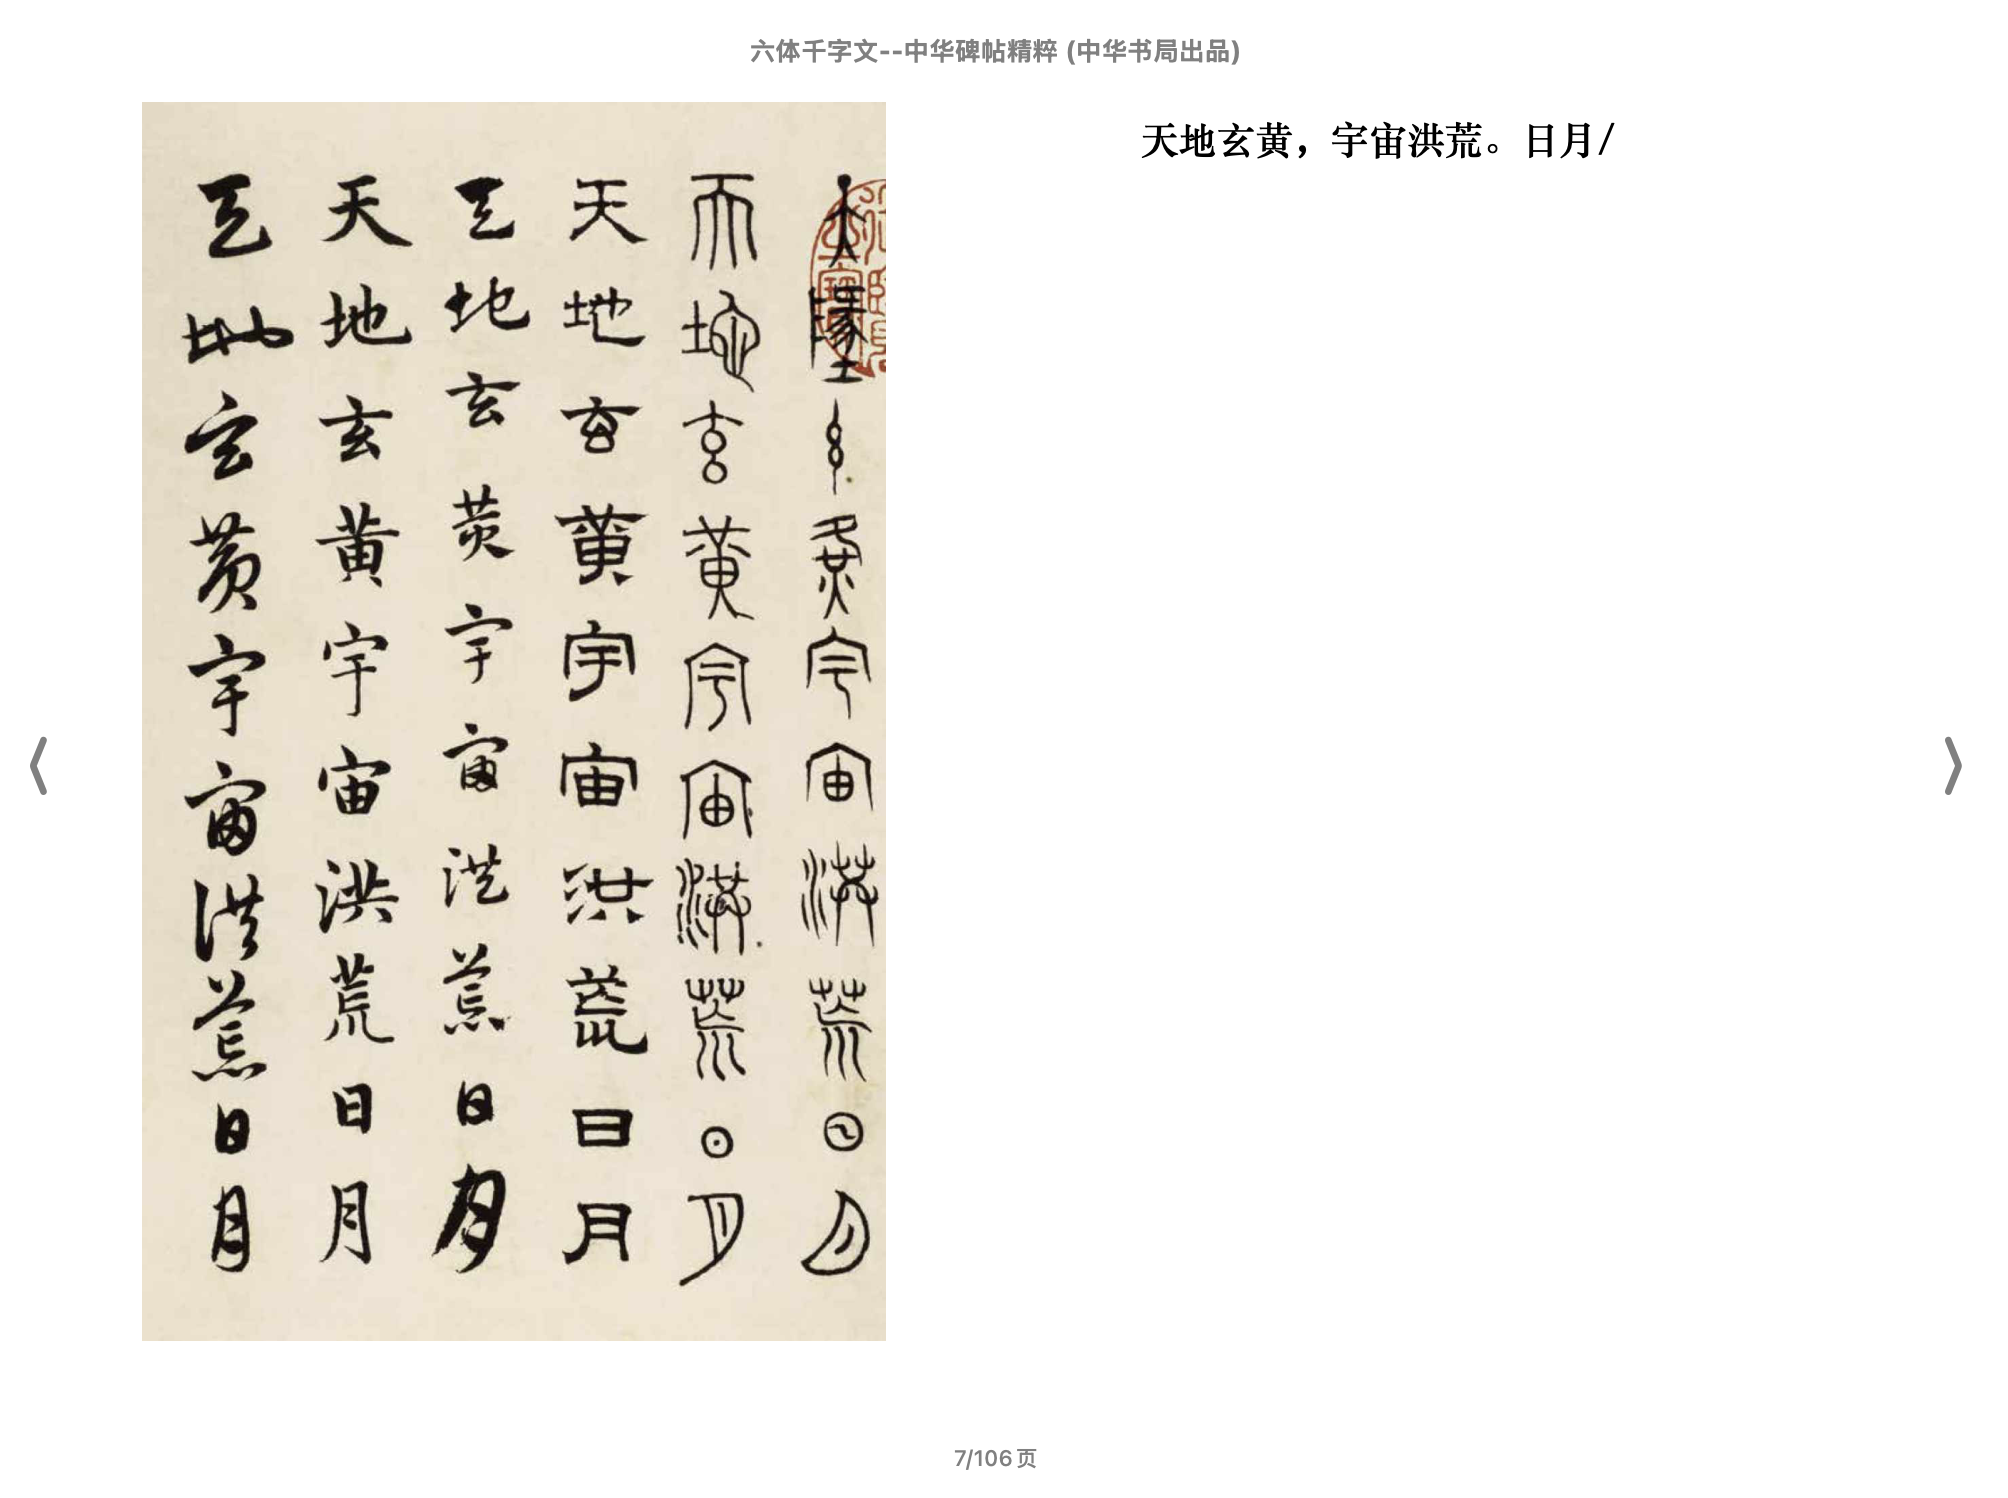 六体千字文--中华碑帖精粹 (中华书局出品)
天地玄黄宇宙洪荒日月
天地玄黄宇宙洪荒日月
天地玄黄宇宙洪荒日月
天地玄黄宇宙洪荒日月
天地玄黄宇宙洪荒日月
天地玄黄宇宙洪荒日月
天地玄黄，宇宙洪荒。日月/
7/106页